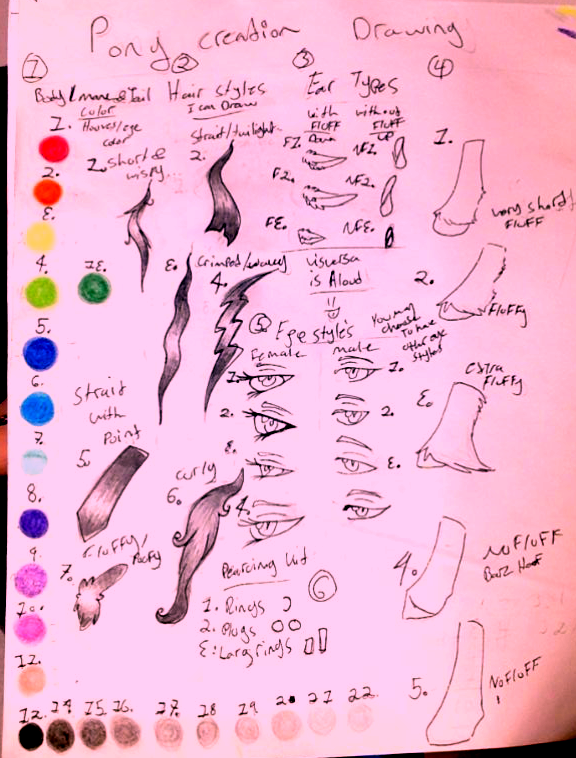 Pony creation Drawing
1
Body/mane & Tail
color
Hooves/eye
color
1.
2.
3.
4.
13.
5.
6.
7.
8.
9.
10.
11.
12. 14 15. 16. 17. 18 19 20 21 22
2
Hair styles
I can Draw
1. short &
wispy
Strait/twilight
2.
3.
Crimped/wavey
4.
Strait
with
Point
5.
curly
6.
Fluffy/
Poofy
7.
3
Ear Types
with
Fluff
Down
with-out
Fluff
UP
F1. NF1.
F2. NF2.
F3. NF3.
visversa
is Aloud
5 Eye styles
You may
choose
to have
other eye
styles
Female male
1. 1.
2. 2.
3.
4.
Peircing List
6
1. Rings
2. Plugs
3. Larg rings
4
1.
very short
Fluff
2.
Fluffy
3.
Extra
Fluffy
4.
No Fluff
5.
No Fluff